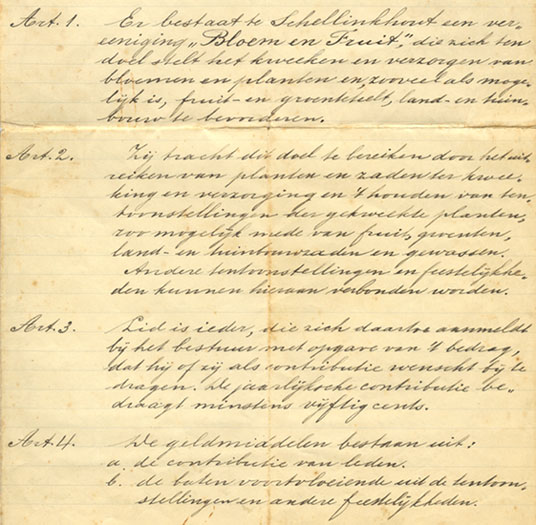 Art. 1. Er bestaat te Schellinkhout een ver-
eeniging „Bloem en Fruit", die zich ten
doel stelt het kweeken en verzorgen van
bloemen en planten en, zooveel als moge-
lijk is, fruit- en groenteteelt, land- en tuin-
bouw te bevorderen.
Art. 2. Zij tracht dit doel te bereiken door het uit-
reiken van planten en zaden ter kwee-
king en verzorging en 't houden van ten-
toonstellingen der gekweekte planten,
zoo mogelijk mede van fruit, groenten,
land- en tuinbouwzaden en gewassen.
Andere tentoonstellingen en feestelijkhe-
den kunnen hieraan verbonden worden.
Art. 3. Lid is ieder, die zich daartoe aanmeldt
bij het bestuur met opgave van 't bedrag,
dat hij of zij als contributie wenscht bij te
dragen. De jaarlijksche contributie be-
draagt minstens vijftig cents.
Art. 4. De geldmiddelen bestaan uit:
a. de contributie van leden.
b. de baten voortvloeiende uit de tentoon-
stellingen en andere feestelijkheden.